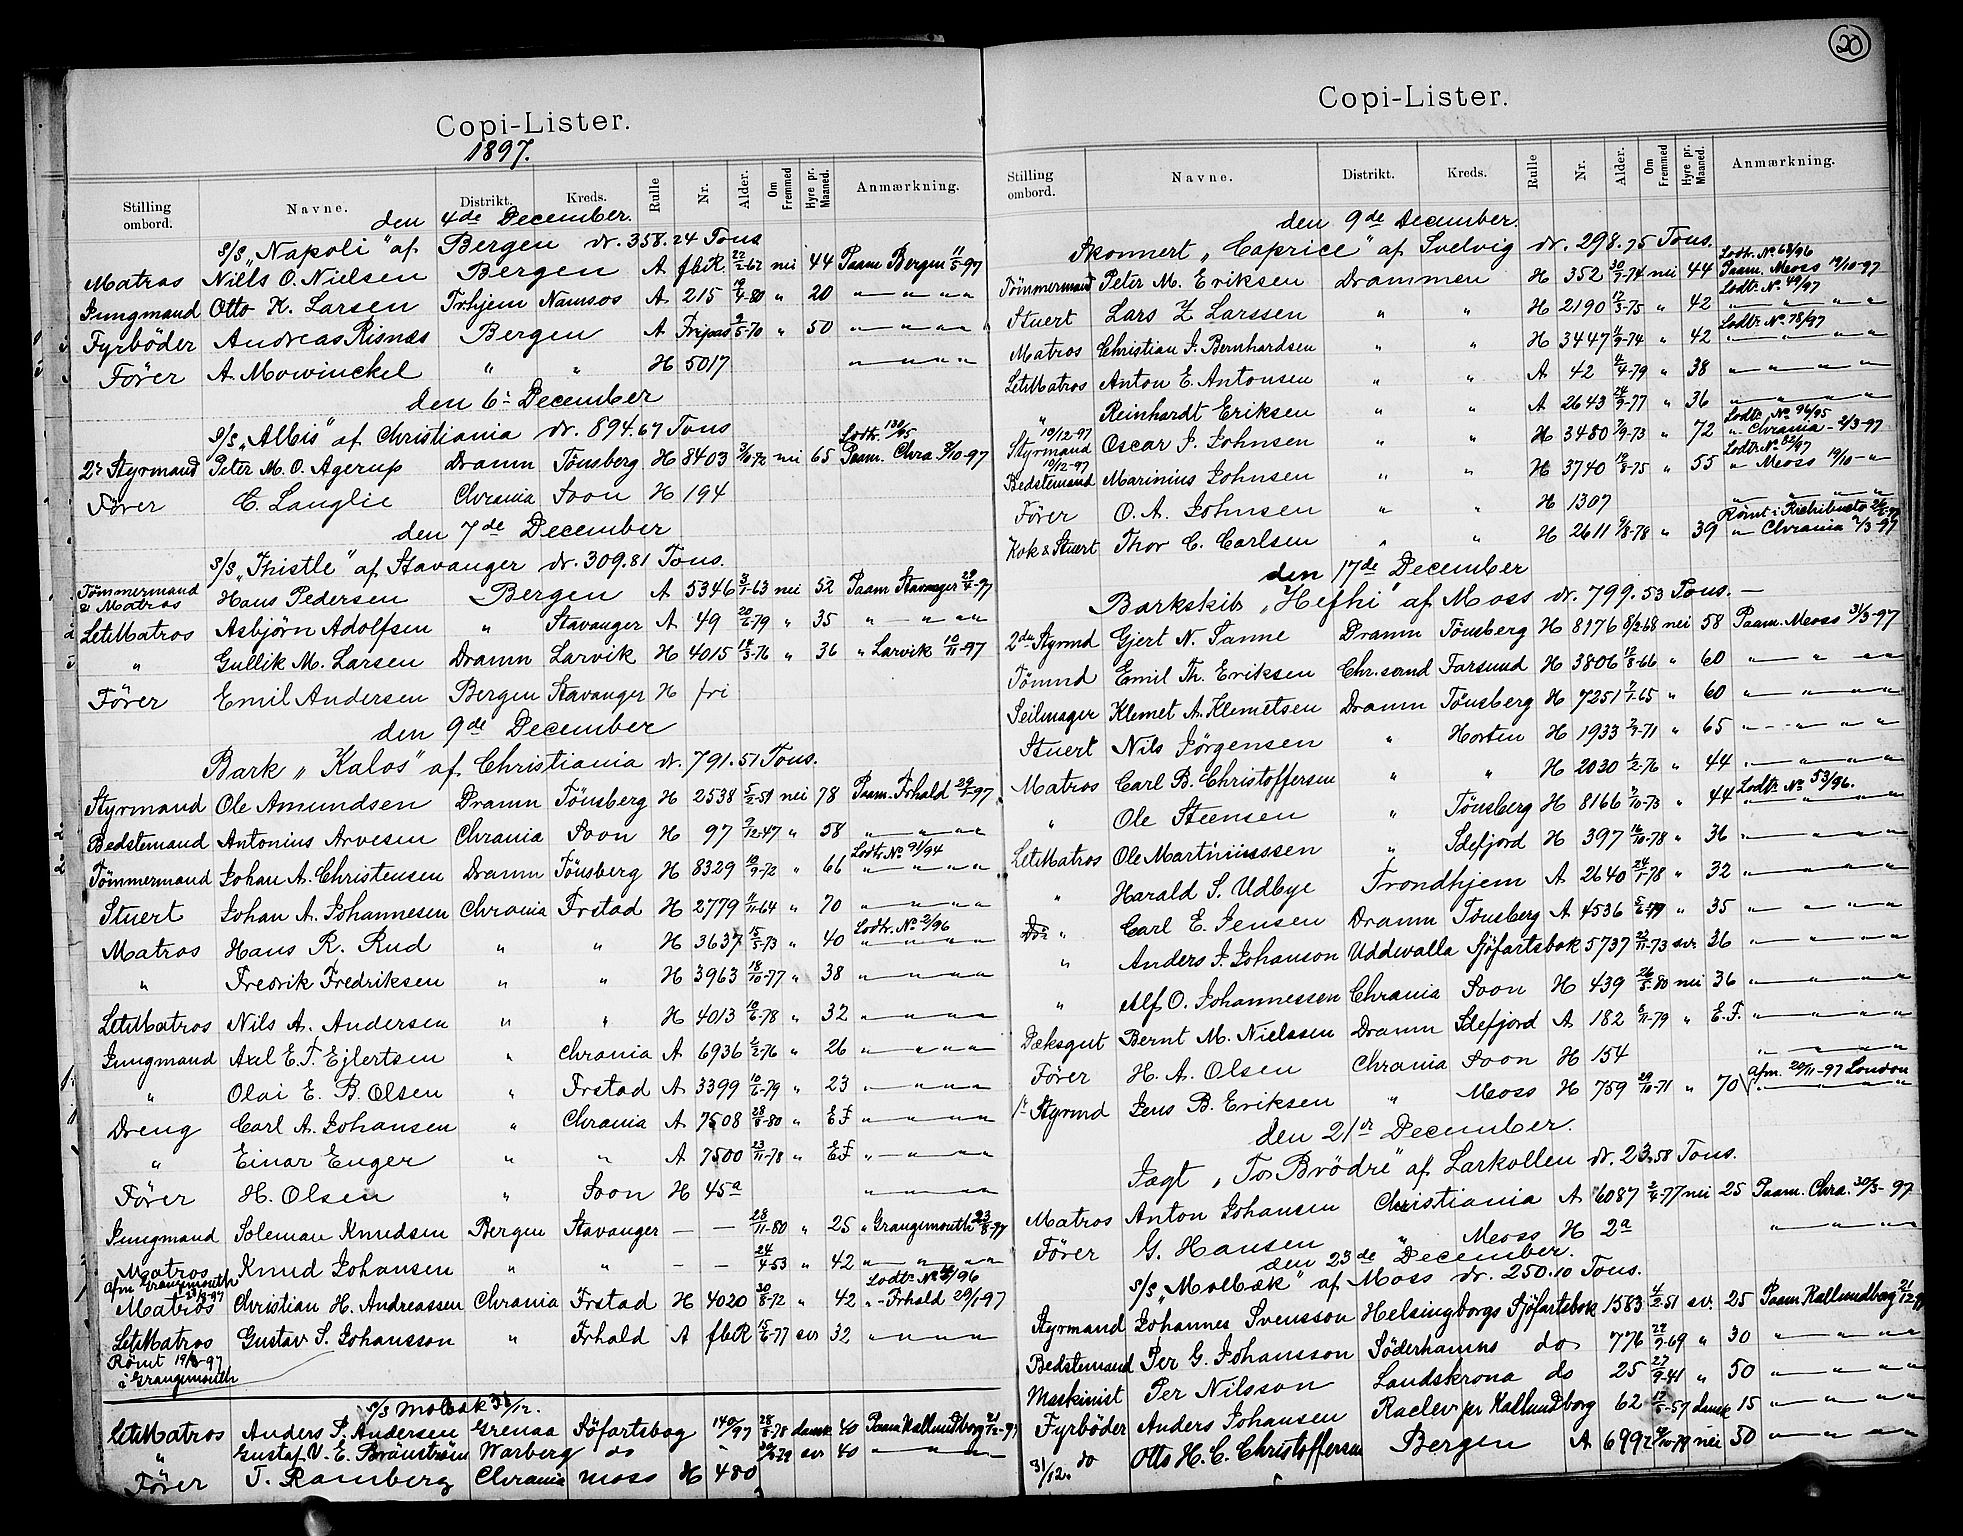 20
Copi-Lister.
1897.
Stilling ombord. Navne. Distrikt. Kreds. Rulle Nr. Alder. Om Fremmed Hyre pr. Maaned. Anmærkning.
den 4de December.
S/S „Napoli" af Bergen dr. 358.24 Tons
Matros Niels O. Nielsen Bergen A fbR 22/2-62 nei 44 Paam Bergen 11/5-97
Jungmand Otto K. Larsen Trhjem Namsos A 215 19/4-80 " 20 " " " "
Fyrbøder Andreas Risnæs Bergen A Fripas 9/5-70 " 50 " " " "
Fører A. Mowinckel " " H 5017 " " " "
den 6te December
S/S „Albis" af Christiania dr. 894.67 Tons
Lodtr. 130/95
2r Styrmand Peter M. O. Agerup Dramn Tønsberg H 8403 3/10-72 nei 65 Paam. Chra 8/10-97
Fører C. Langlie Chrania Soon H 194
den 7de December
S/S „Thistle" af Stavanger dr. 309.81 Tons.
Tømmermand & Matros Hans Pedersen Bergen A 5346 3/1-63 nei 52 Paam Stavanger 29/4-97
LetMatros Asbjørn Adolfsen " Stavanger A 49 20/6-79 " 35 " " "
" Gullik M. Larsen Dramn Larvik H 4015 14/3-76 " 36 " Larvik 10/11-97
Fører Emil Andersen Bergen Stavanger H fri
den 9de December
Bark „Kalos" af Christiania dr. 791.51 Tons.
Styrmand Ole Amundsen Dramn Tønsberg H 2538 5/2-51 nei 78 Paam. Frhald 29/1-97
Bedstemand Antonius Arvesen Chrania Soon H 97 9/12-47 " 58 " " " "
Lodtr. No 91/94
Tømmermand Johan A. Christensen Dramn Tønsberg H 8329 10/9-72 " 66 " " " "
Stuert Johan A. Johannesen Chrania Frstad H 2779 6/11-64 " 70 " " " "
Lodtr. No 2/96
Matros Hans R. Rud " " H 3637 15/5-73 " 40 " " " "
" Fredrik Fredriksen " " H 3963 18/10-77 " 38 " " " "
LetMatros Nils A. Andersen " " H 4013 10/6-78 " 32 " " " "
Jungmand Axl E. T. Ejlertsen " Chrania A 6936 6/2-76 " 26 " " " "
" Olai E. B. Olsen " Frstad A 3399 10/6-79 " 23 " " " "
Dreng Carl A. Johansen " Chrania A 7508 28/8-80 " EF " " " "
" Einar Enger " " A 7500 23/11-78 " EF " " " "
Fører H. Olsen " Soon H 45a " " " "
Jungmand Soleman Knudsen Bergen Stavanger — — 28/11-80 " 25 " Grangemouth 23/8-97
Matros Knud Johansen " " — — 24/4-53 " 42 " " " "
Afm Grangemouth 23/8-97
Lodtr No 96
Matros Christian H. Andreassen Chrania Frstad H 4020 30/8-72 " 42 " Frhald 29/1-97
LetMatros Gustav S. Johansson " Frhald A fbR 15/6-77 sv 32 " " " "
Rømt 19/8-97 i Grangemouth
S/S Molbæk 31/12.
LetMatros Anders P. Andersen Grenaa Søfartsbog 140/97 28/8-78 dansk 40 Paam Kallundborg 21/12-97
" Gustaf V. E. Brännström Warberg do " sv 40 " " "
Fører T. Ramberg Chrania Moss H 480
Copi-Lister.
Stilling ombord. Navne. Distrikt. Kreds. Rulle Nr. Alder. Om Fremmed Hyre pr. Maaned. Anmærkning.
den 9de December.
Skonnert „Caprice" af Svelvig dr. 298.75 Tons.
Lodtr. No 68/96
Tømmermand Peter M. Eriksen Drammen H 352 30/9-74 nei 44 Paam. Moss 19/10-97
Lodtr. No 49/97
Stuert Lars Z Larssen " " H 2190 17/3-75 " 42 " " " "
Lodtr No 78/97
Matros Christian J. Bernhardsen " " H 3447 4/9-74 " 42 " " " "
LetMatros Anton E. Antonsen " " A 42 4/4-79 " 38 " " " "
" Reinhardt Eriksen " " A 2643 24/9-77 " 36 " " " "
Lodtr. No 96/95
19/12-97 Styrmand Oscar J. Johnsen " " H 3480 7/9-73 " 72 " Chrania - 2/3-97
Lodtr No 82/97
19/12-97 Bedstemand Marinius Johnsen " " H 3740 19/8-75 " 55 " Moss 19/10-"
Fører O. A. Johnsen " " H 1307 " " " "
Kok & Stuert Thor C. Carlsen " " H 2611 9/8-78 " 39 " Chrania 2/3-97
den 17de December
Barkskib „Hefhi" af Moss dr. 799.53 Tons.
2den Styrmd Gjert N. Tanne Dramn Tønsberg H 8176 8/2-68 nei 58 Paam. Moss 31/3-97
Tømmd Emil Th. Eriksen Chr.sand Farsund H 3806 12/8-66 " 60 " " " "
Seilmager Klemet A. Klemetsen Dramn Tønsberg H 7251 7/1-65 " 60 " " " "
Stuert Nils Jørgensen " Horten H 1933 2/9-71 " 65 " " " "
Matros Carl B. Christoffersen " " H 2030 6/2-76 " 44 " " " "
Lodtr. No 53/96.
" Ole Steensen " Tønsberg H 8166 9/10-73 " 44 " " " "
LetMatros Ole Martiniussen " Sdefjord H 397 16/10-78 " 36 " " " "
" Harald S. Udbye Trondhjem A 2640 24/1-78 " 32 " " " "
" Carl E. Jensen Dramn Tønsberg A 4536 5/6-79 " 35 " " " "
" Anders J. Johanson Uddevalla Sjöfartsbok 5737 22/11-73 sv. 36 " " " "
" Alf O. Johannessen Chrania Soon H 439 26/5-80 nei 36 " " " "
Dæksgut Bernt M. Nielssen Dramn Sdefjord A 182 6/11-79 " E.F. " " " "
Fører H. A. Olsen Chrania Soon H 154 " " " "
Afm. 20/11-97 London
1ste Styrmd Jens B. Eriksen " Moss H 759 29/10-71 " 70 " " " "
den 21de December.
Jagt „To Brødre" af Larkollen dr. 23.58 Tons.
Matros Anton Johansen Christiania A 6087 2/4-77 nei 25 Paam. Chra. 30/3-97
Fører G. Hansen " Moss H 2a " " "
den 23de December.
S/S „Molbæk" af Moss dr. 250.10 Tons.
Styrmand Johannes Svensson Helsingborgs Sjöfartsbok 1583 4/2-51 sv. 25 Paam Kallundborg 21/12-97
Bedstemand Per G. Johansson Söderhamns do 776 22/9-69 " 30 " " " "
Maskinist Per Nilsson Landskrona do 25 27/9-41 " 50 " " " "
Fyrbøder Anders Johansen Raclev pr Kallundborg 62 17/5-57 dansk 15 " " " "
31/12. do Otto H. C. Christoffersen Bergen A 6992 9/10-79 nei 50 " " " "